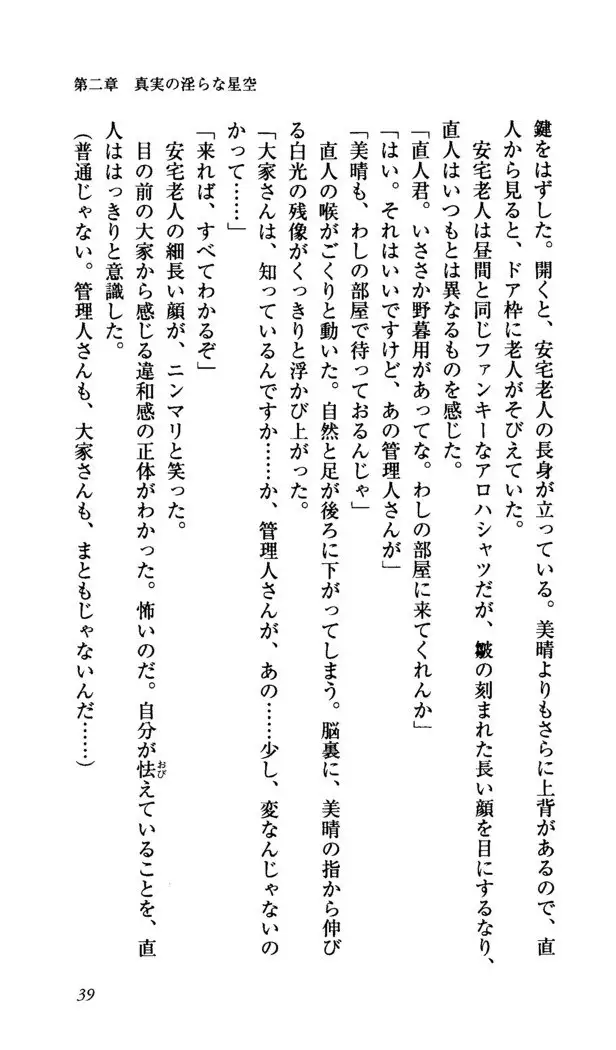 第二章　真実の淫らな星空
鍵をはずした。開くと、安宅老人の長身が立っている。美晴よりもさらに上背があるので、直
人から見ると、ドア枠に老人がそびえていた。
　安宅老人は昼間と同じファンキーなアロハシャツだが、皺の刻まれた長い顔を目にするなり、
直人はいつもとは異なるものを感じた。
「直人君。いささか野暮用があってな。わしの部屋に来てくれんか」
「はい。それはいいですけど、あの管理人さんが」
「美晴も、わしの部屋で待っておるんじゃ」
　直人の喉がごくりと動いた。自然と足が後ろに下がってしまう。脳裏に、美晴の指から伸び
る白光の残像がくっきりと浮かび上がった。
「大家さんは、知っているんですか……か、管理人さんが、あの……少し、変なんじゃないの
かって……」
「来れば、すべてわかるぞ」
　安宅老人の細長い顔が、ニンマリと笑った。
　目の前の大家から感じる違和感の正体がわかった。怖いのだ。自分が怯えていることを、直
おび
人ははっきりと意識した。
（普通じゃない。管理人さんも、大家さんも、まともじゃないんだ……）
39